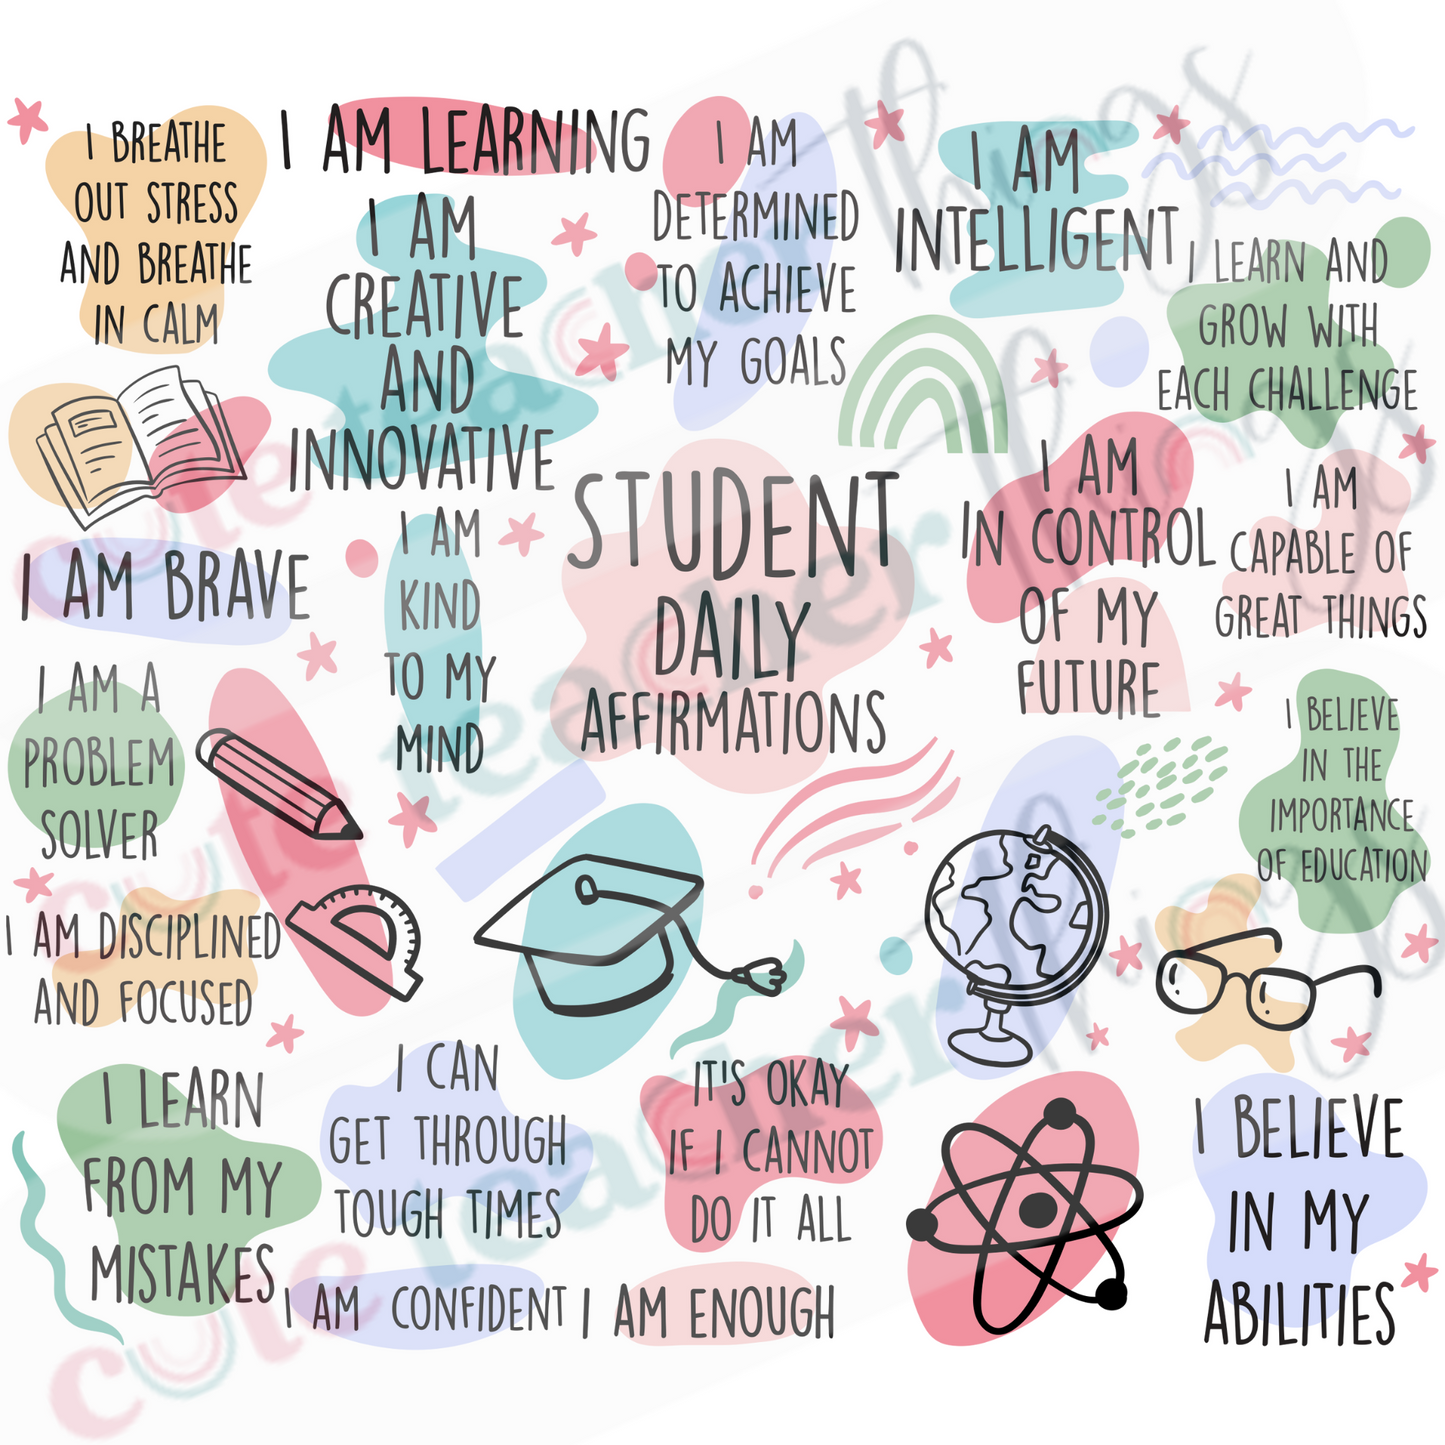 I BREATHE
OUT STRESS
AND BREATHE
IN CALM
I AM LEARNING
I AM
CREATIVE
AND
INNOVATIVE
I AM
DETERMINED
TO ACHIEVE
MY GOALS
I AM
INTELLIGENT
I LEARN AND
GROW WITH
EACH CHALLENGE
I AM BRAVE
I AM
KIND
TO MY
MIND
STUDENT
DAILY
AFFIRMATIONS
I AM
IN CONTROL
OF MY
FUTURE
I AM
CAPABLE OF
GREAT THINGS
I AM A
PROBLEM
SOLVER
I BELIEVE
IN THE
IMPORTANCE
OF EDUCATION
I AM DISCIPLINED
AND FOCUSED
I LEARN
FROM MY
MISTAKES
I CAN
GET THROUGH
TOUGH TIMES
IT'S OKAY
IF I CANNOT
DO IT ALL
I BELIEVE
IN MY
ABILITIES
I AM CONFIDENT
I AM ENOUGH
cute teacher things
cute teacher things
cute teacher things